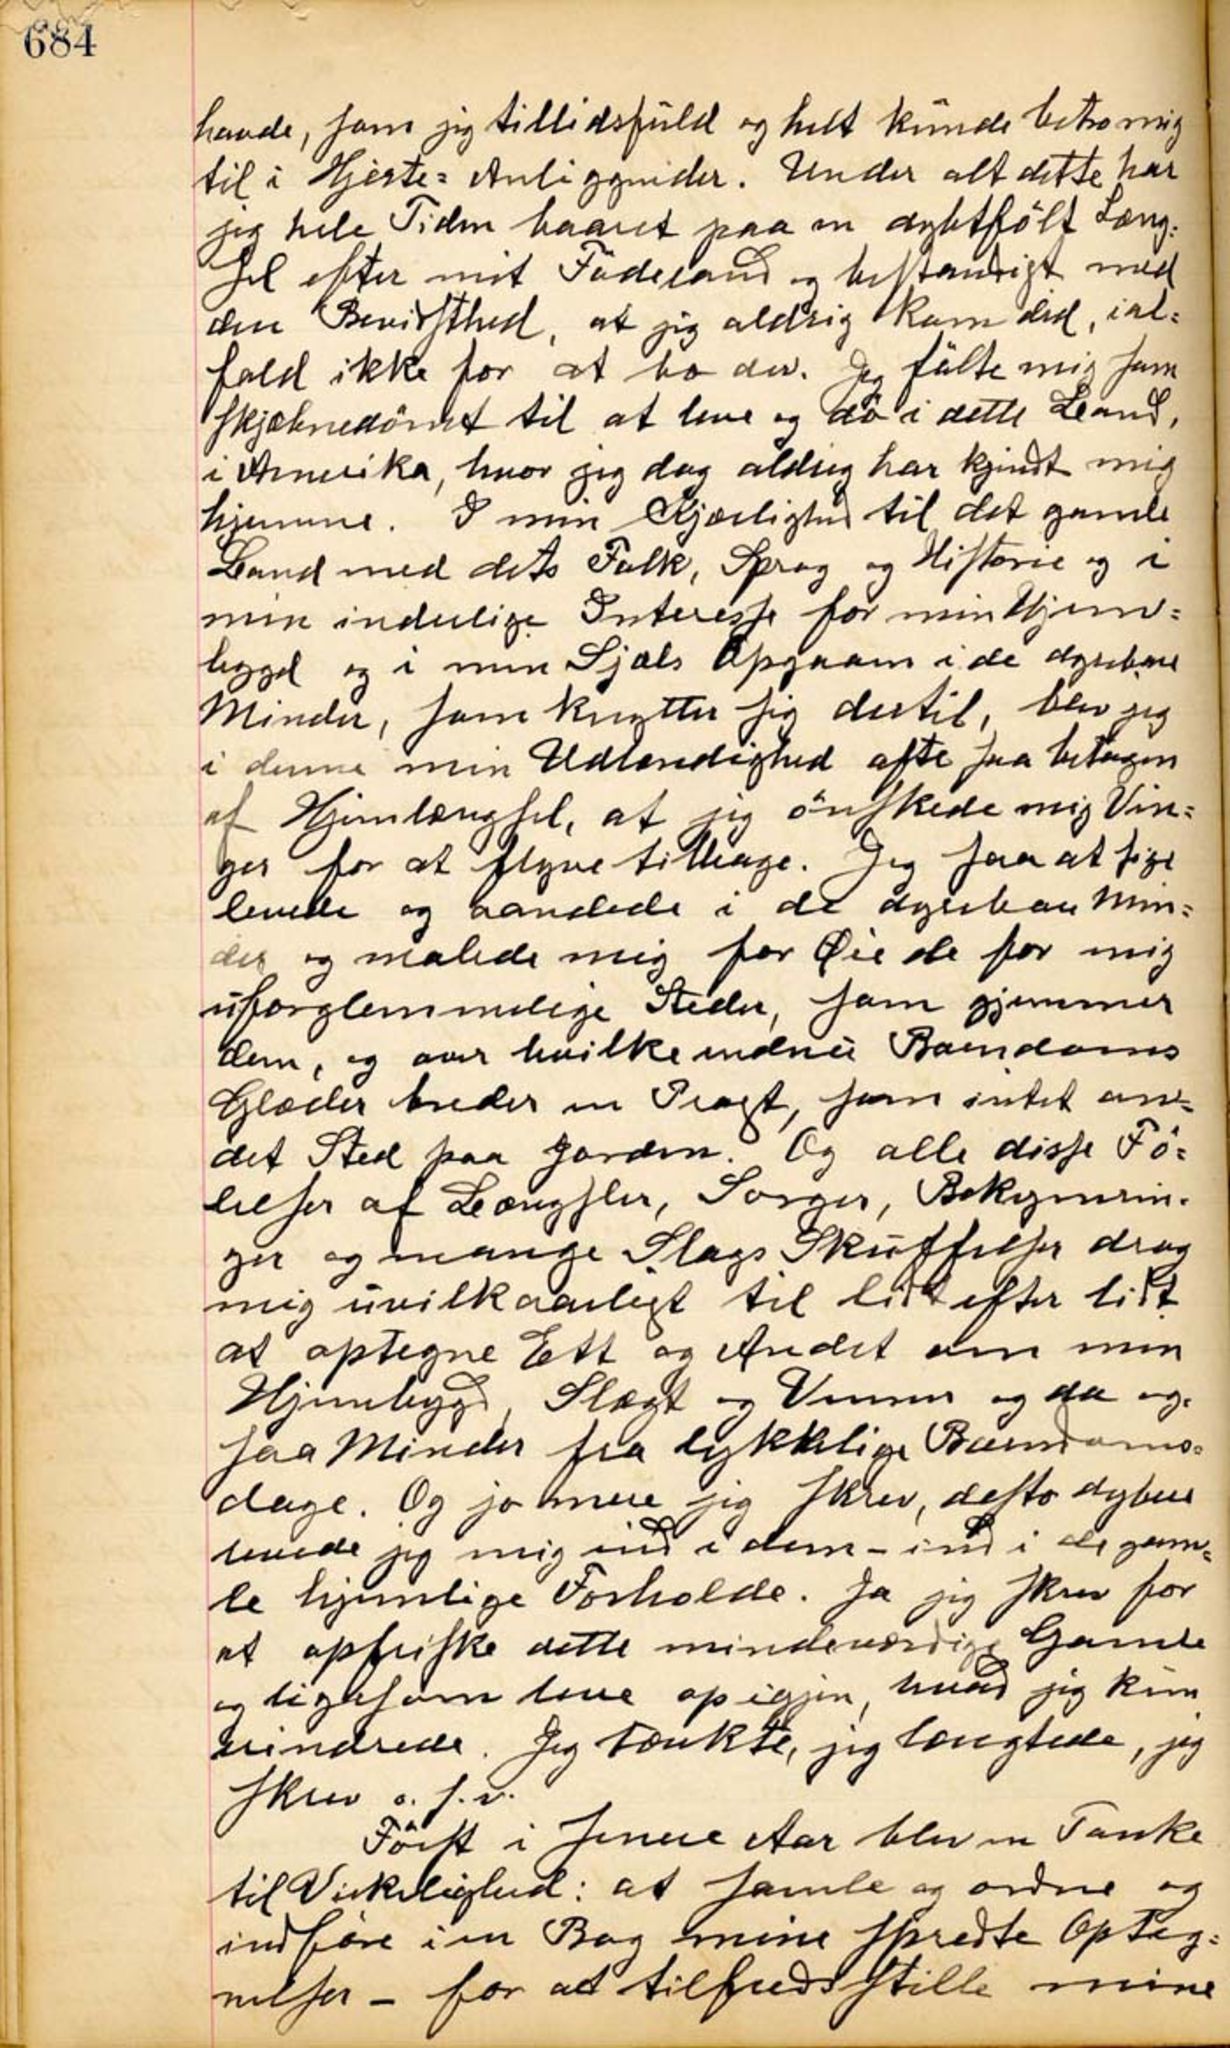 684
havde, som jeg tillidsfuld og helt kunde betro mig
til i Hjerte= Anliggender. Under alt dette har
jeg hele Tiden baaret paa en dybtfölt Læng=
sel efter mit Födeland og bestandigt med
den Bevidsthed, at jeg aldrig kom did, ial=
fald ikke for at bo der. Jeg fölte mig som
skjæbnedömt til at leve og dö i dette Land,
i Amerika, hvor jeg dog aldrig har kjendt mig
hjemme. I min Kjærlighed til det gamle
Land med dets Folk, Sprog og Historie og i
min inderlige Interesse for min Hjem=
bygd og i min Sjæls Opgaaen i de dyrebare
Minder, som knytter sig dertil, blev jeg
i denne min Udlændighed ofte saa betagen
af Hjemlængsel, at jeg önskede mig Vin=
ger for at flyve tilbage. Jeg saa at sige
levede og aandede i de dyrebare Min=
der og malede mig for Öie de for mig
uforglemmelige Steder, som gjemmer
dem, og over hvilke endnu Barndoms
Glæder breder en Pragt, som intet an=
det Sted paa Jorden. Og alle disse Fö=
lelser af Længsler, Sorger, Bekymrin=
ger og mange Slags Skuffelser drog
mig uvilkaarligt til lidt efter lidt
at optegne Ett og Andet om min
Hjembygd, Slægt og Venner og da og=
saa Minder fra lykkelige Barndoms=
dage. Og jo mere jeg skrev, desto dybere
levede jeg mig ind i dem - ind i de gam=
le hjemlige Forholde. Ja jeg skrev for
at opfriske dette mindeværdige Gamle
og ligesom leve op igjen, hvad jeg kun
mindrede. Jeg tænkte, jeg længtede, jeg
skrev o. s. v.
Först i senere Aar blev en Tanke
til Virkelighed: at samle og ordne og
indföre i en Bog mine spredte Opteg=
nelser - for at tilfredsstille mine